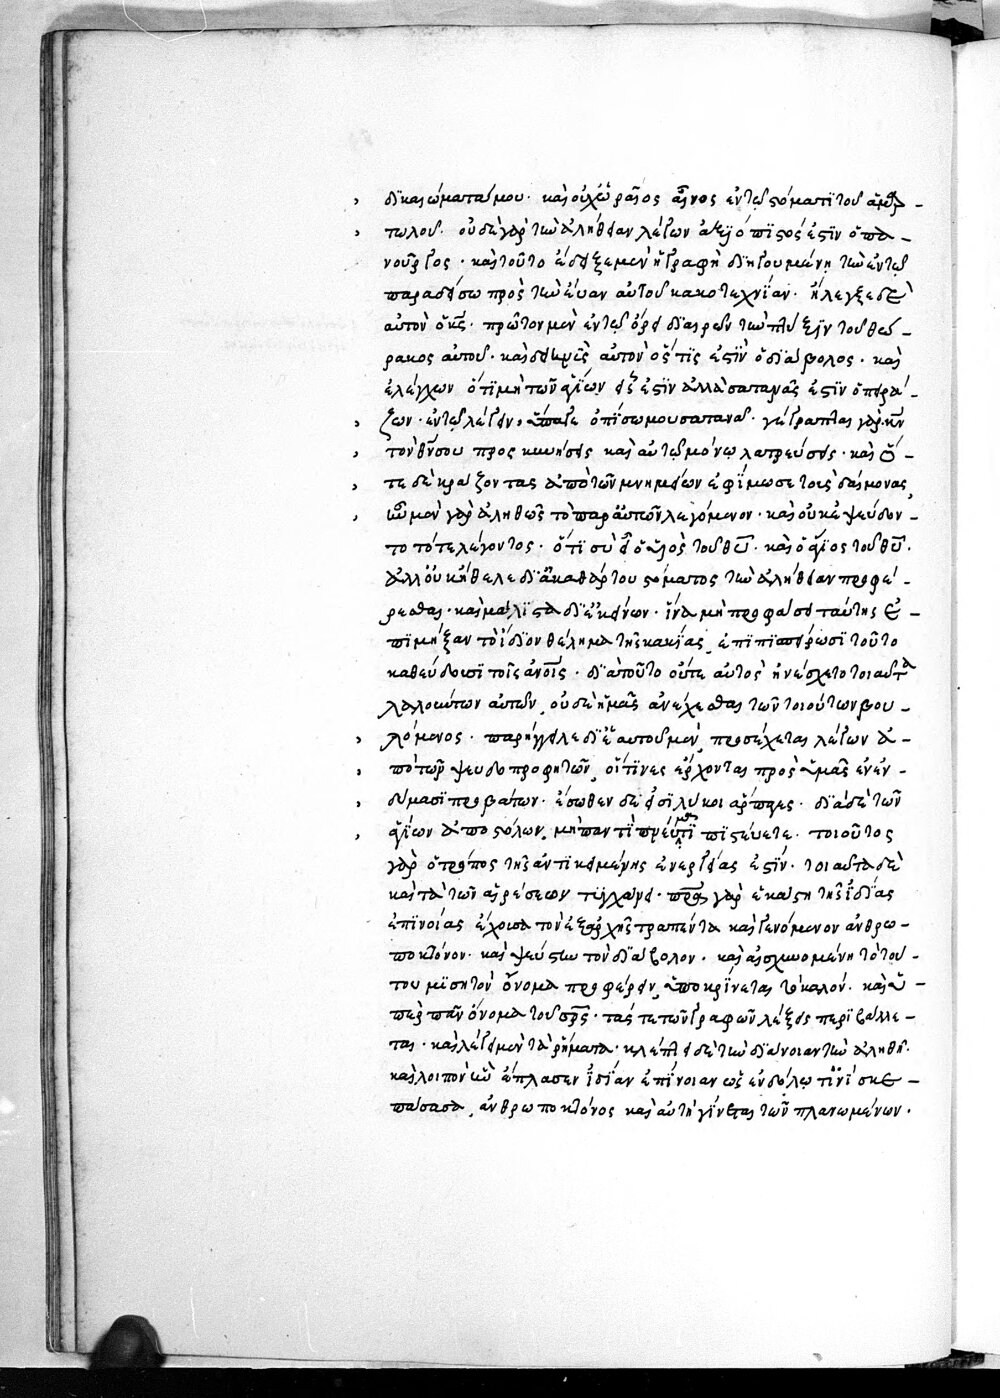 δικαιώματά μου· καὶ οὐχ ὡραῖος αἶνος ἐν τῷ στόματι τοῦ ἁμαρ –
τωλοῦ· οὐδὲ γὰρ τὴν ἀλήθειαν λέγων ἀξιόπιστός ἐστιν ὁ πα –
νοῦργος· καὶ τοῦτο ἔδειξε μὲν ἡ γραφὴ διηγουμένη τὴν ἐν τῷ
παραδείσω πρὸς τὴν εὔαν αὐτοῦ κακοτεχνίαν· ἤλεγξε δὲ
αὐτὸν ὁ κς· πρῶτον μὲν ἐν τῷ ὄρει διαιρῶν τὴν πτύξιν τοῦ θώ –
ρακος αὐτοῦ· καὶ δεικνὺς αὐτὸν ὅστις ἐστὶν ὁ διάβολος· καὶ
ἐλέγχων ὅτι μὴ τῶν ἁγίων εἷς ἐστὶν ἀλλὰ σατανᾶς ἐστὶν ὁ πειρά –
ζων· ἐν τῷ λέγειν, ὕπαγε ὀπίσω μου σατανᾶ· γέγραπται γὰρ κν
τὸν θν σου προσκυνήσεις καὶ αὐτῷ μόνῳ λατρεύσεις· καὶ ὅ –
τε δὲ κράζοντας ἀπὸ τῶν μνημείων ἐφίμωσε τοὺς δαίμονας,
ἦν μὲν γὰρ ἀληθῶς τὸ παρ' αὐτῶν λεγόμενον· καὶ οὐκ ἐψεύδον –
το τότε λέγοντες· ὅτι σὺ εἶ ὁ υἱὸς τοῦ θυ· καὶ ὁ ἅγιος τοῦ θυ·
ἀλλ' οὐκ ἤθελε δι' ἀκαθάρτου στόματος τὴν ἀλήθειαν προφέ –
ρεσθαι· καὶ μάλιστα δι' ἐκείνων· ἵνα μὴ προφάσει ταύτης ἐ –
πιμήξαν τὸ ἴδιον θέλημα τῆς κακίας, ἐπιπαρείρωσι τοῦτο
καθεύδουσι τοῖς ανοις· διὰ τοῦτο οὔτε αὐτὸς ἠνέσχετο τοιαῦτα
λαλούντων αὐτῶν, οὐδὲ ἡμᾶς ἀνέχεσθαι τῶν τοιούτων βου –
λόμενος· παρήγγειλε δι' ἑαυτοῦ μὲν, προσέχεται λέγων ἀ –
πὸ τῶν ψευδοπροφητῶν, οἵτινες ἔρχονται πρὸς ὑμᾶς ἐν ἐν –
δύμασι προβάτων· ἔσωθεν δέ εἰσι λύκοι ἅρπαγες· διὰ δὲ τῶν
ἁγίων ἀποστόλων, μὴ παντὶ πνεύματι πιστεύετε· τοιοῦτος
γὰρ ὁ τρόπος τῆς ἀντικειμένης ἐνεργείας ἐστίν· τοιαῦτα δὲ
καὶ τὰ τῶν αἱρέσεων τυγχάνει· προς γὰρ ἑκάστη τῆς ἰδίας
ἐπινοίας ἔχουσα τὸν ἐξ ἀρχῆς τραπέντα καὶ γενόμενον ἀνθρω –
ποκτόνον· καὶ ψεύστην τὸν διάβολον· καὶ αἰσχυνομένη τὸ τού –
του μισητὸν ὄνομα προφέρειν, ὑποκρίνεται τὸ καλὸν· καὶ ὑ –
πὲρ πᾶν ὄνομα τοῦ σρς· τάς τε τῶν γραφῶν λέξεις περιβάλλε –
ται· καὶ λέγει μὲν τὰ ῥήματα· κλέπτει δὲ τὴν διάνοιαν τὴν ἀληθῆ·
καὶ λοιπὸν ἣν ἔπλασεν ἰδίαν ἐπίνοιαν ὡς ἐν δόλῳ τινὶ σκε –
πάσασα, ἀνθρωποκτόνος καὶ αὐτὴ γίνεται τῶν πλανωμένων·